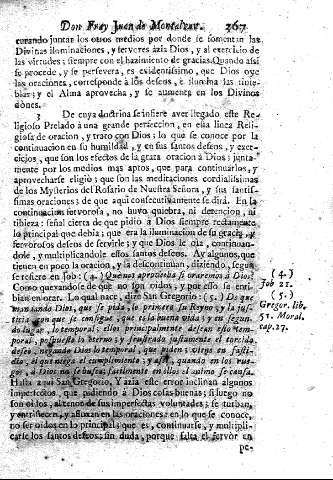 Don Fray Juan de Montalvan. 267
curando juntar los otros medios por donde se fomentan las
Divinas iluminaciones, y fervores àzia Dios, y al exercicio de
las virtudes; siempre con hazimiento de gracias. Quando assi
se procede, y se persevera, es evidentissimo, que Dios oye
las oraciones, corresponde à los deseos, è ilumina las tinie-
blas; y el Alma aprovecha, y se aumenta en los Divinos
dones.
3 De cuya doctrina se infiere aver llegado este Re-
ligioso Prelado à una grande perfeccion, en esta linea Reli-
giosa de oracion, y trato con Dios; lo que se conoce por la
continuacion en su humildad, y en sus santos deseos, y exer-
cicios, que son los efectos de la grata oracion à Dios; junta-
mente por los medios mas aptos, que para continuarlos, y
aprovecharse eligiò; que son las meditaciones cordialissimas
de los Mysterios del Rosario de Nuestra Señora, y sus santis-
simas oraciones; de que aqui consecutivamente se dirà. En la
continuacion fervorosa, no huvo quiebra, ni detencion, ni
tibieza; señal cierta de que pidiò à Dios siempre rectamente
lo principal que debia; que era la iluminacion de su gracia, y
fervorosos deseos de servirle; y que Dios le oìa, continuan-
dole, y multiplicandole estos santos deseos. Ay algunos, que
tienen en poco la oracion, y la descontinuan, diziendo, segun
se refiere en Job: (4.) Què nos aprovecha si oraremos à Dios?
Como quexandose de que no son oidos, y por esso se enti-
bian en orar. Lo qual nace, dize San Gregorio: (5.) De que
mandando Dios, que se pida, lo primero su Reyno, y la jus-
ticia con que se consigue, que es la buena vida; y en segun-
do lugar, lo temporal; ellos principalmente desean esso tem-
poral, pospuesto lo eterno; y frustrada justamente el torcido
deseo, negando Dios lo temporal, que piden; viven en fasti-
dio, si que niega el cumplimiento; y assi, quando en los rue-
gos, à Dios no se busca; facilmente en ellos el animo se cansa.
Hasta aqui San Gregorio. Y azia este error inclinan algunos
imperfectos, que pidiendo à Dios cosas buenas; si luego no
son oidos, al tenor de sus imperfectas voluntades; se turban,
y entristecen, y afloxan en las oraciones: en lo que se conoce,
no ser oidos en lo principal; que es, continuarse, y multipli-
carse los santos deseos; sin duda, porque falta el fervor en
pe-
(4.)
Job 21.
(5.)
Gregor. lib.
51. Moral.
cap. 27.